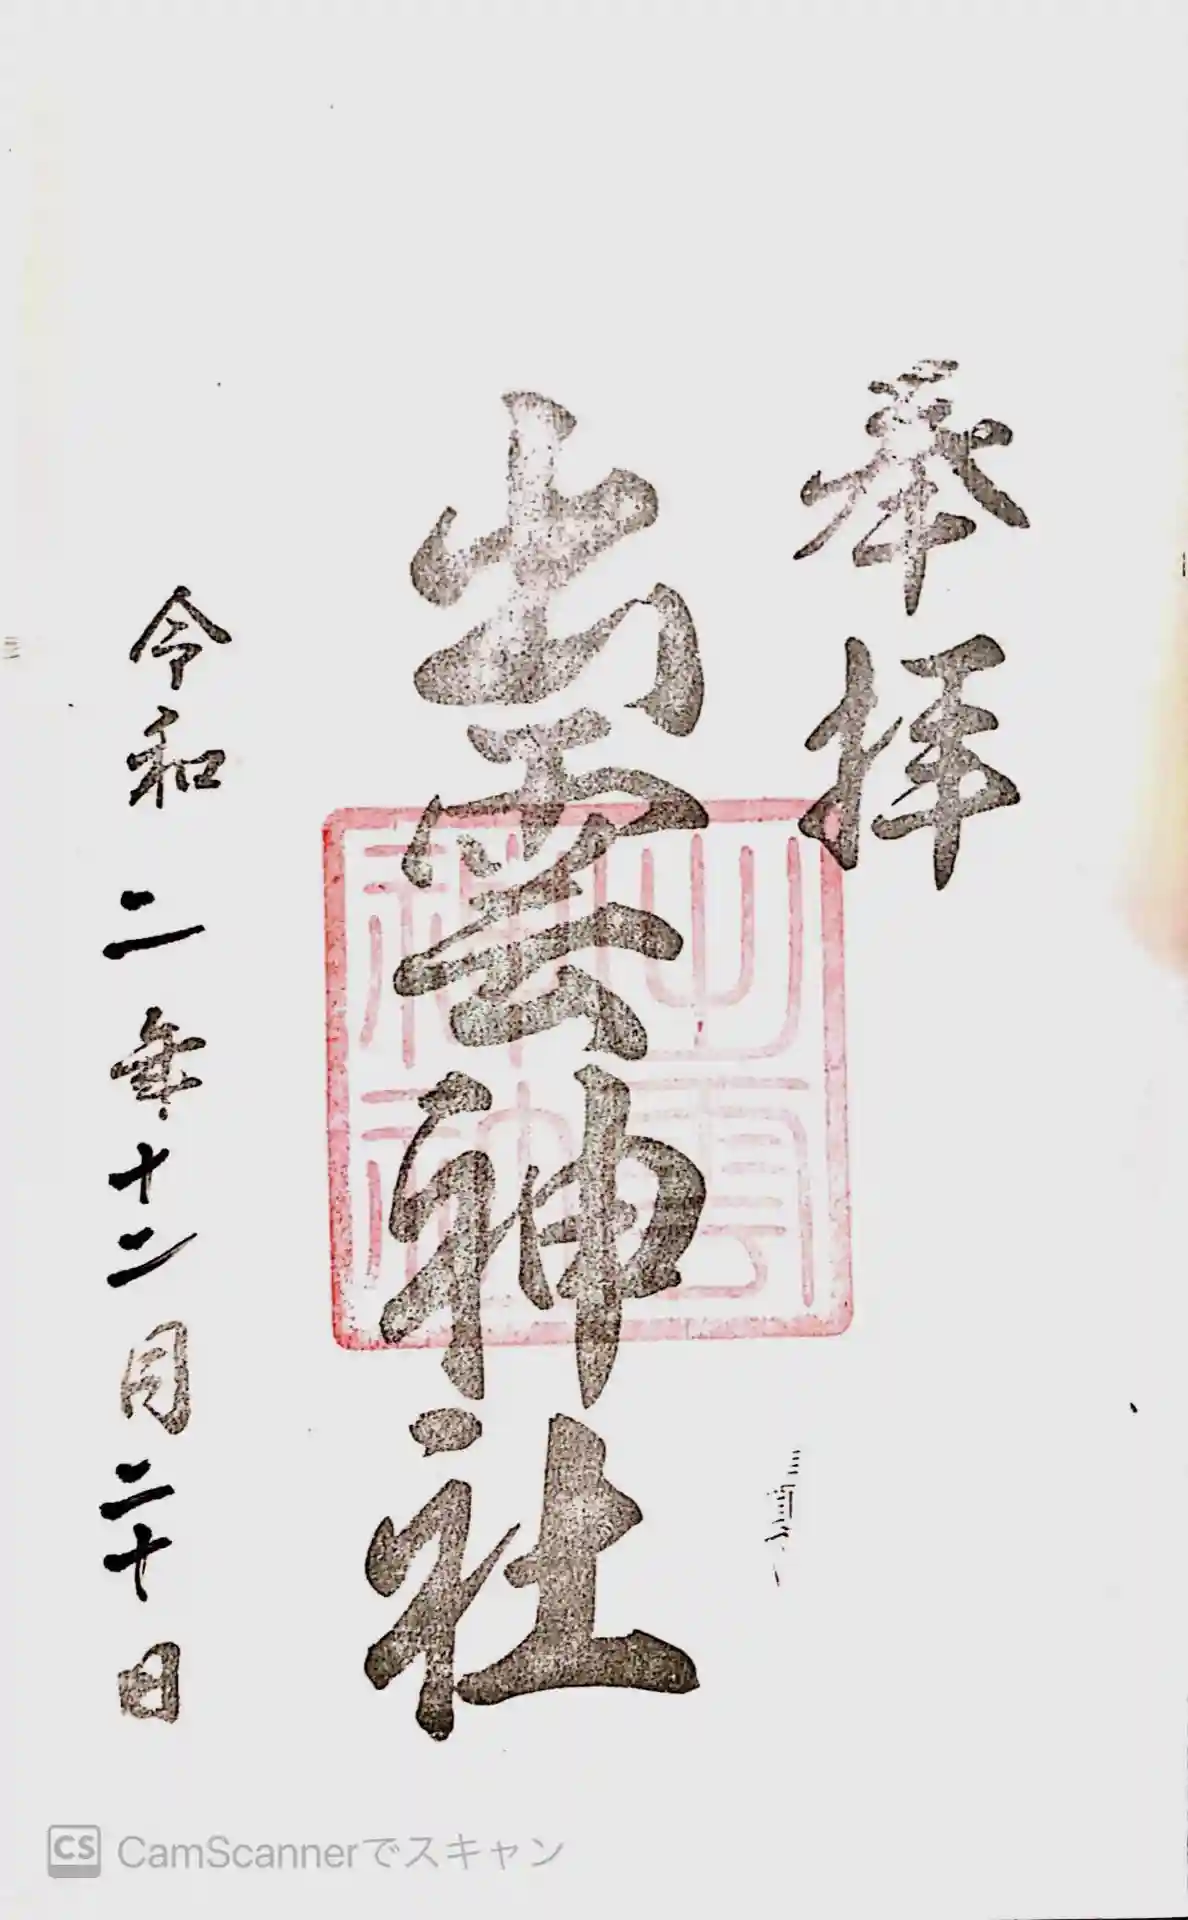 奉拝
出雲神社
出雲神社
令和二年十二月二十日
CS CamScannerでスキャン